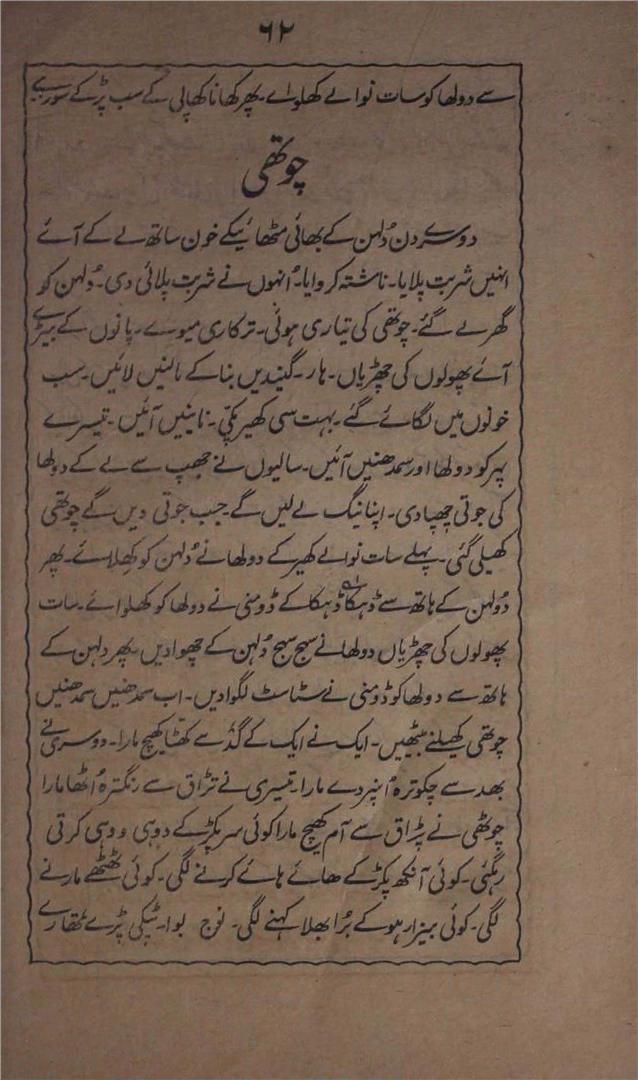 ۶۲
سے دولھا کو سات نوالے کھلوائے۔ پھر کھانا کھا پی کے سب پڑ کے سو رہے
چوتھی
دوسرے دن دُلہن کے بھائی مٹھائیکے خون ساتھ لے کے آئے
انہیں شربت پلایا۔ ناشتہ کروایا۔ اُنہوں نے شربت پلائی دی۔ دُلہن کو
گھر لے گئے۔ چوتھی کی تیاری ہوئی۔ ترکاری میوے۔ پانوں کے بیڑے
آئے پھولوں کی چھڑیاں۔ ہار۔ گیندیں بنا کے مالنیں لائیں۔ سب
خونوں میں لگائے گئے۔ بہت سی کھیر پکی۔ نایئیں آئیں۔ تیسرے
پہر کو دولھا اور سمدھنیں آئیں۔ سالیوں نے جھپ سے لے کے دولھا
کی جوتی چھپا دی۔ اپنا نیگ لے لیں گے۔ جب جوتی دیں گے چوتھی
کھیلی گئی۔ پہلے سات نوالے کھیر کے دولھا نے دُلہن کو کھلائے۔ پھر
دُولہن کے ہاتھ سے ڈہکا ڈہکا کے ڈومنی نے دولھا کو کھلوائے۔ سات
پھولوں کی چھڑیاں دولھا نے سہج سہج دُلہن کے چھوا دیں۔ پھر دلہن کے
ہاتھ سے دولھا کو ڈومنی نے سٹاسٹ لگوا دیں۔ اب سمدھنیں سمدھنیں
چوتھی کھیلنے بیٹھیں۔ ایک نے ایک کے گدُ سے کھٹا کھیچ مارا۔ دوسری نے
بھد سے چکوترہ اُنپر دے مارا۔ تیسری نے تڑاق سے رنگترہ اُٹھا مارا
چوتھی نے پڑاق سے آم کھیچ مارا کوئی سر پکڑ کے دوہی و وہی کرتی
رہگئی۔ کوئی آنکھ پکڑ کے ھائے ہائے کرنے لگی۔ کوئی ٹھٹھے مارنے
لگی۔ کوئی بیزار ہو کے بُرا بھلا کہنے لگی۔ نوج بوا۔ ٹپکی پڑے تمھارے